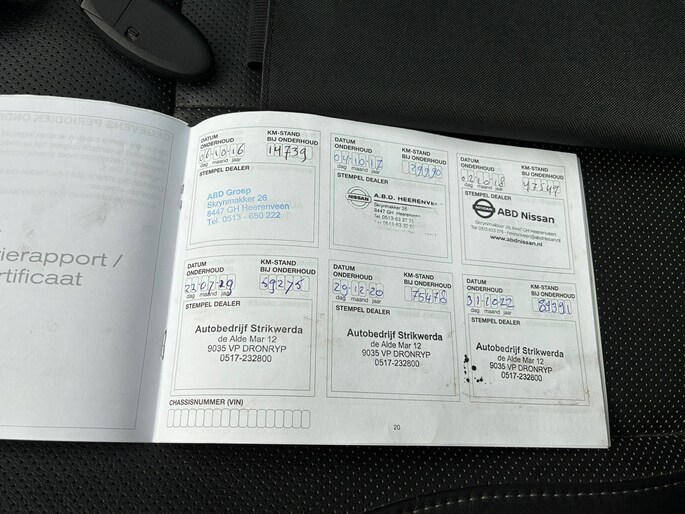 rierapport /
rtificaat
DATUM
ONDERHOUD
KM-STAND
BIJ ONDERHOUD
06 10 16
14739
dag maand jaar
STEMPEL DEALER
ABD Groep
Skrynmakker 26
8447 GH Heerenveen
Tel. 0513 - 650 222
DATUM
ONDERHOUD
KM-STAND
BIJ ONDERHOUD
04 10 17
39990
dag maand jaar
STEMPEL DEALER
NISSAN
A.B.D. HEERENVEE
Skrynmakker 26
8447 GH HEERENVEEN
DATUM
ONDERHOUD
KM-STAND
BIJ ONDERHOUD
02 10 18
47547
dag maand jaar
STEMPEL DEALER
NISSAN
ABD Nissan
www.abdnissan.nl
DATUM
ONDERHOUD
KM-STAND
BIJ ONDERHOUD
59275
dag maand jaar
STEMPEL DEALER
Autobedrijf Strikwerda
de Alde Mar 12
9035 VP DRONRYP
0517-232800
DATUM
ONDERHOUD
KM-STAND
BIJ ONDERHOUD
29 12 20
75478
dag maand jaar
STEMPEL DEALER
Autobedrijf Strikwerda
de Alde Mar 12
9035 VP DRONRYP
0517-232800
DATUM
ONDERHOUD
KM-STAND
BIJ ONDERHOUD
31 10 22
89391
dag maand jaar
STEMPEL DEALER
Autobedrijf Strikwerda
de Alde Mar 12
9035 VP DRONRYP
0517-232800
CHASSISNUMMER (VIN)
20